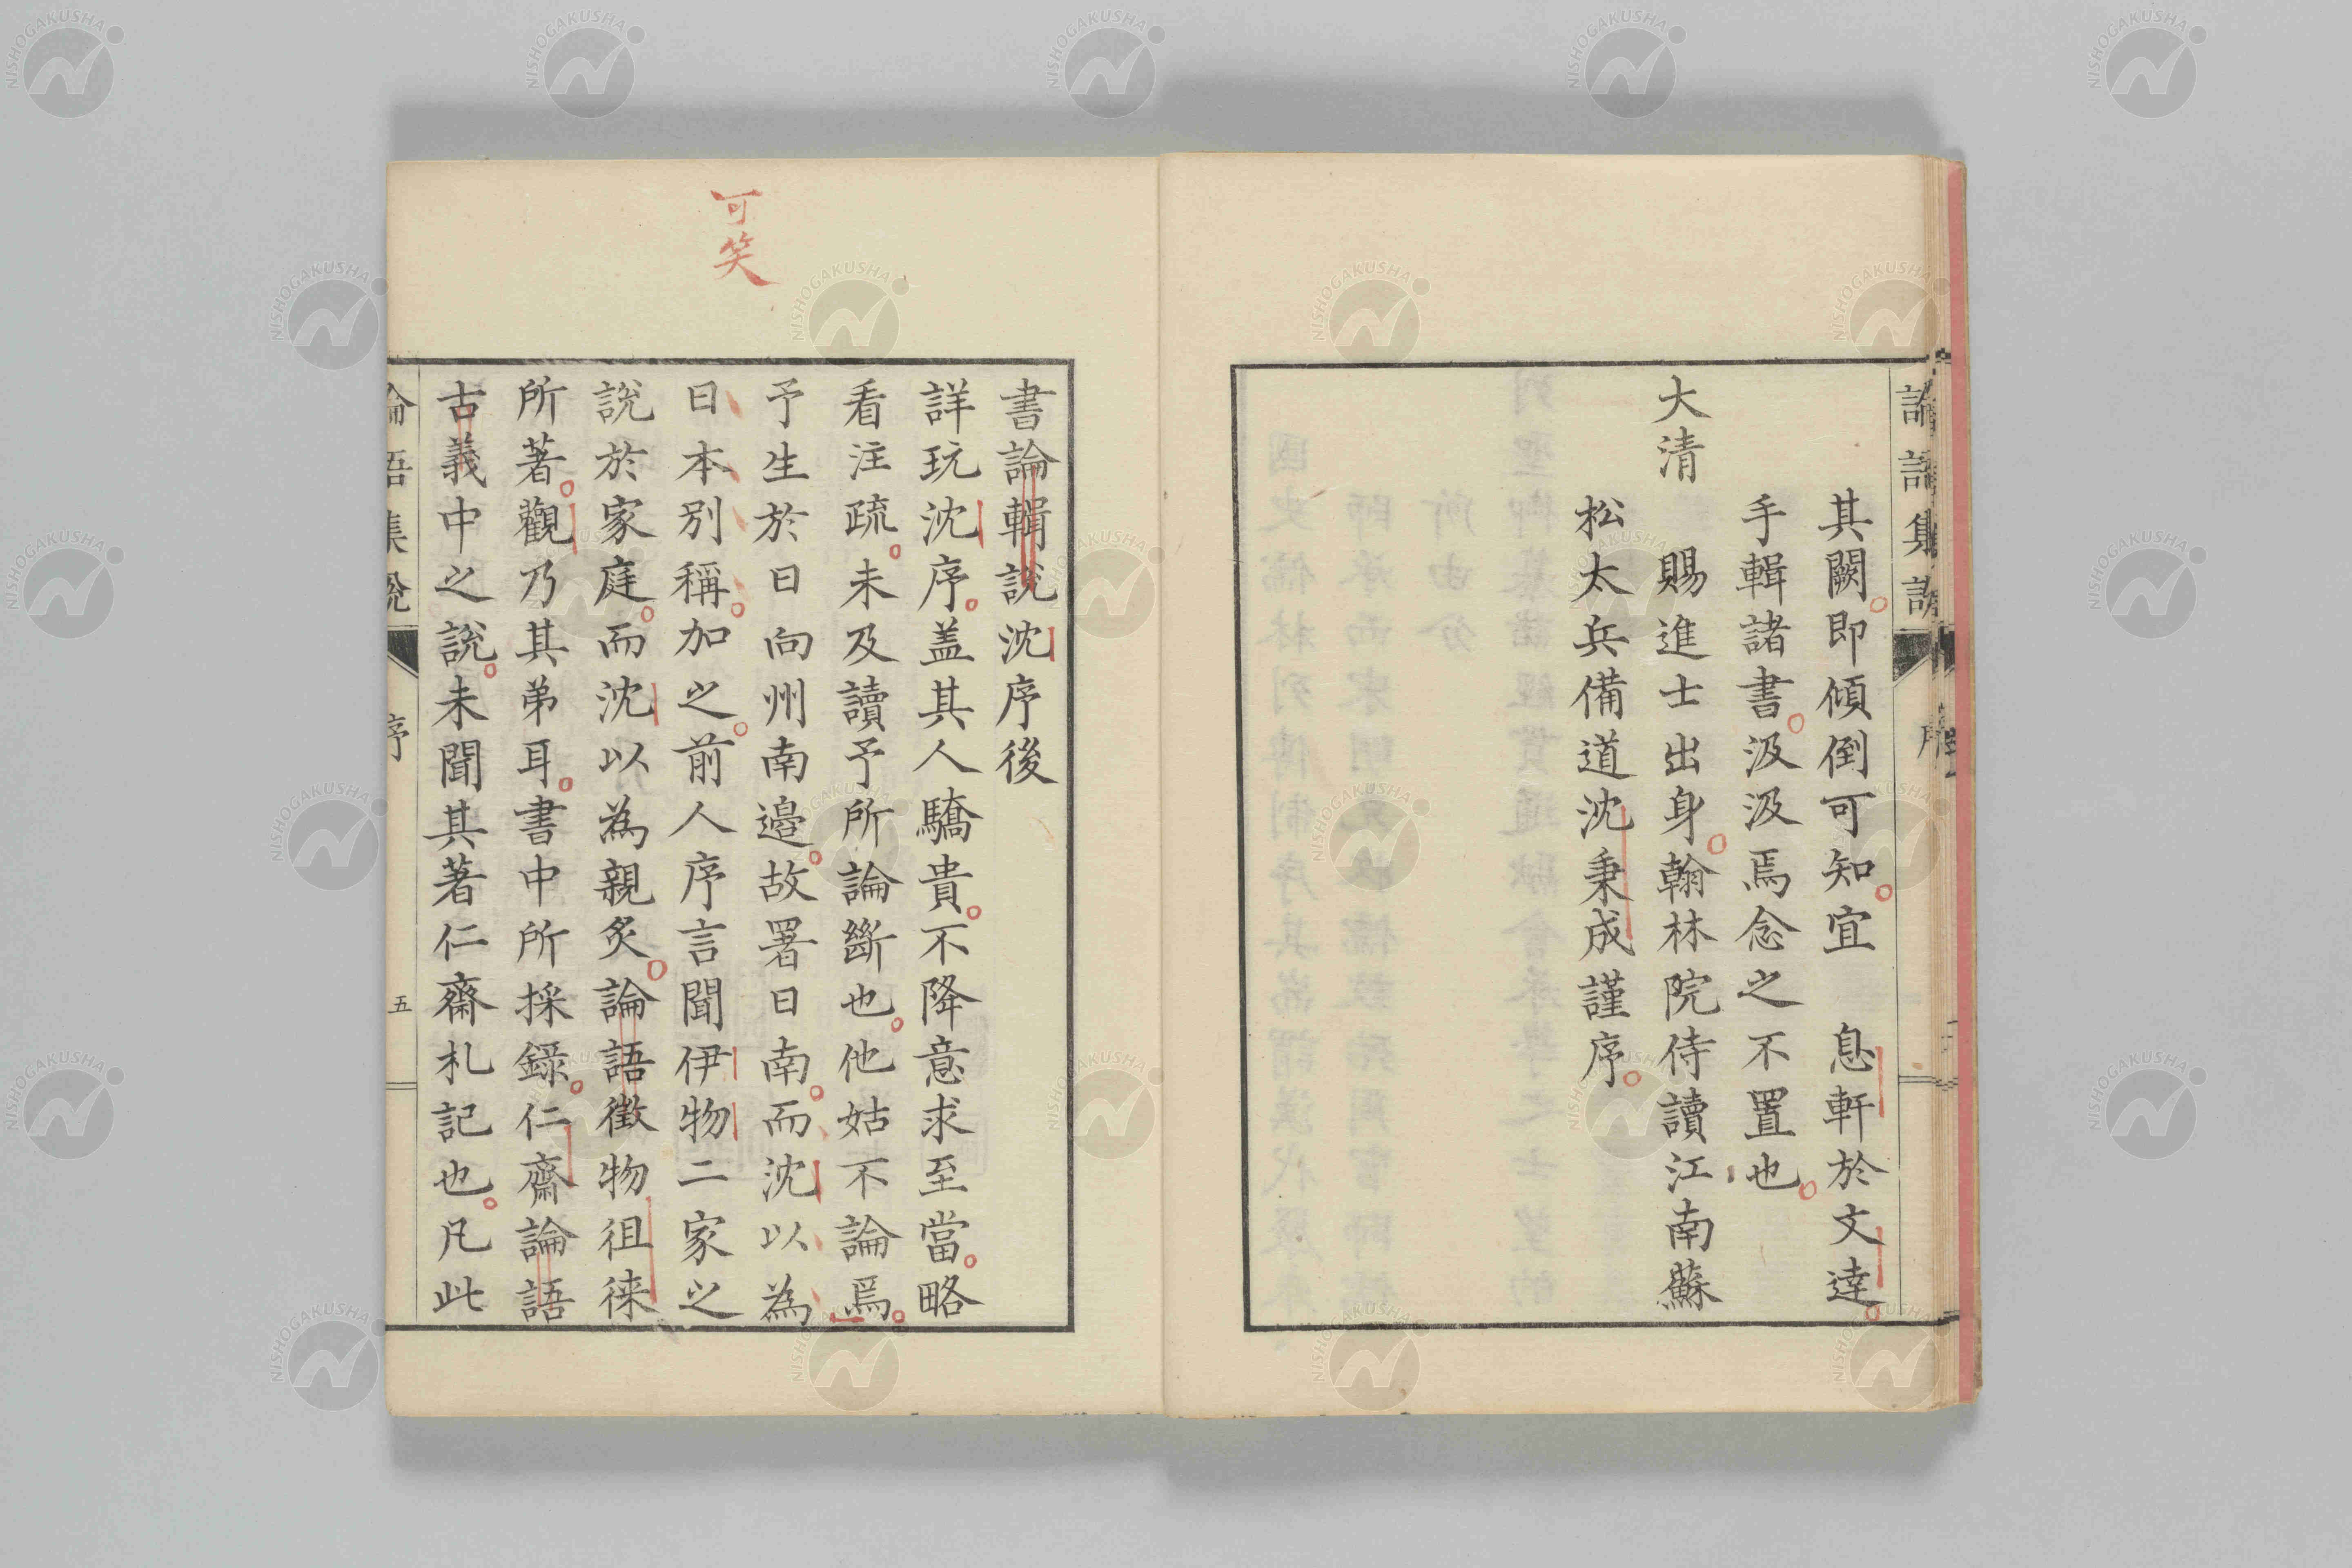 其闕即傾倒可知宜　息軒於文達
手輯諸書汲汲焉念之不置也
大清　賜進士出身翰林院侍讀江南蘇
松太兵備道沈秉成謹序
書論輯說沈序後
詳玩沈序盖其人驕貴不降意求至當略
看注疏未及讀予所論斷也他姑不論焉
予生於日向州南邉故署日南而沈以為
日本別稱加之前人序言聞伊物二家之
說於家庭而沈以為親炙論語徵物徂徠
所著觀乃其弟耳書中所採錄仁齋論語
古義中之說未聞其著仁齋札記也凡此
論語集說　序　五
可笑
NISHOGAKUSHA